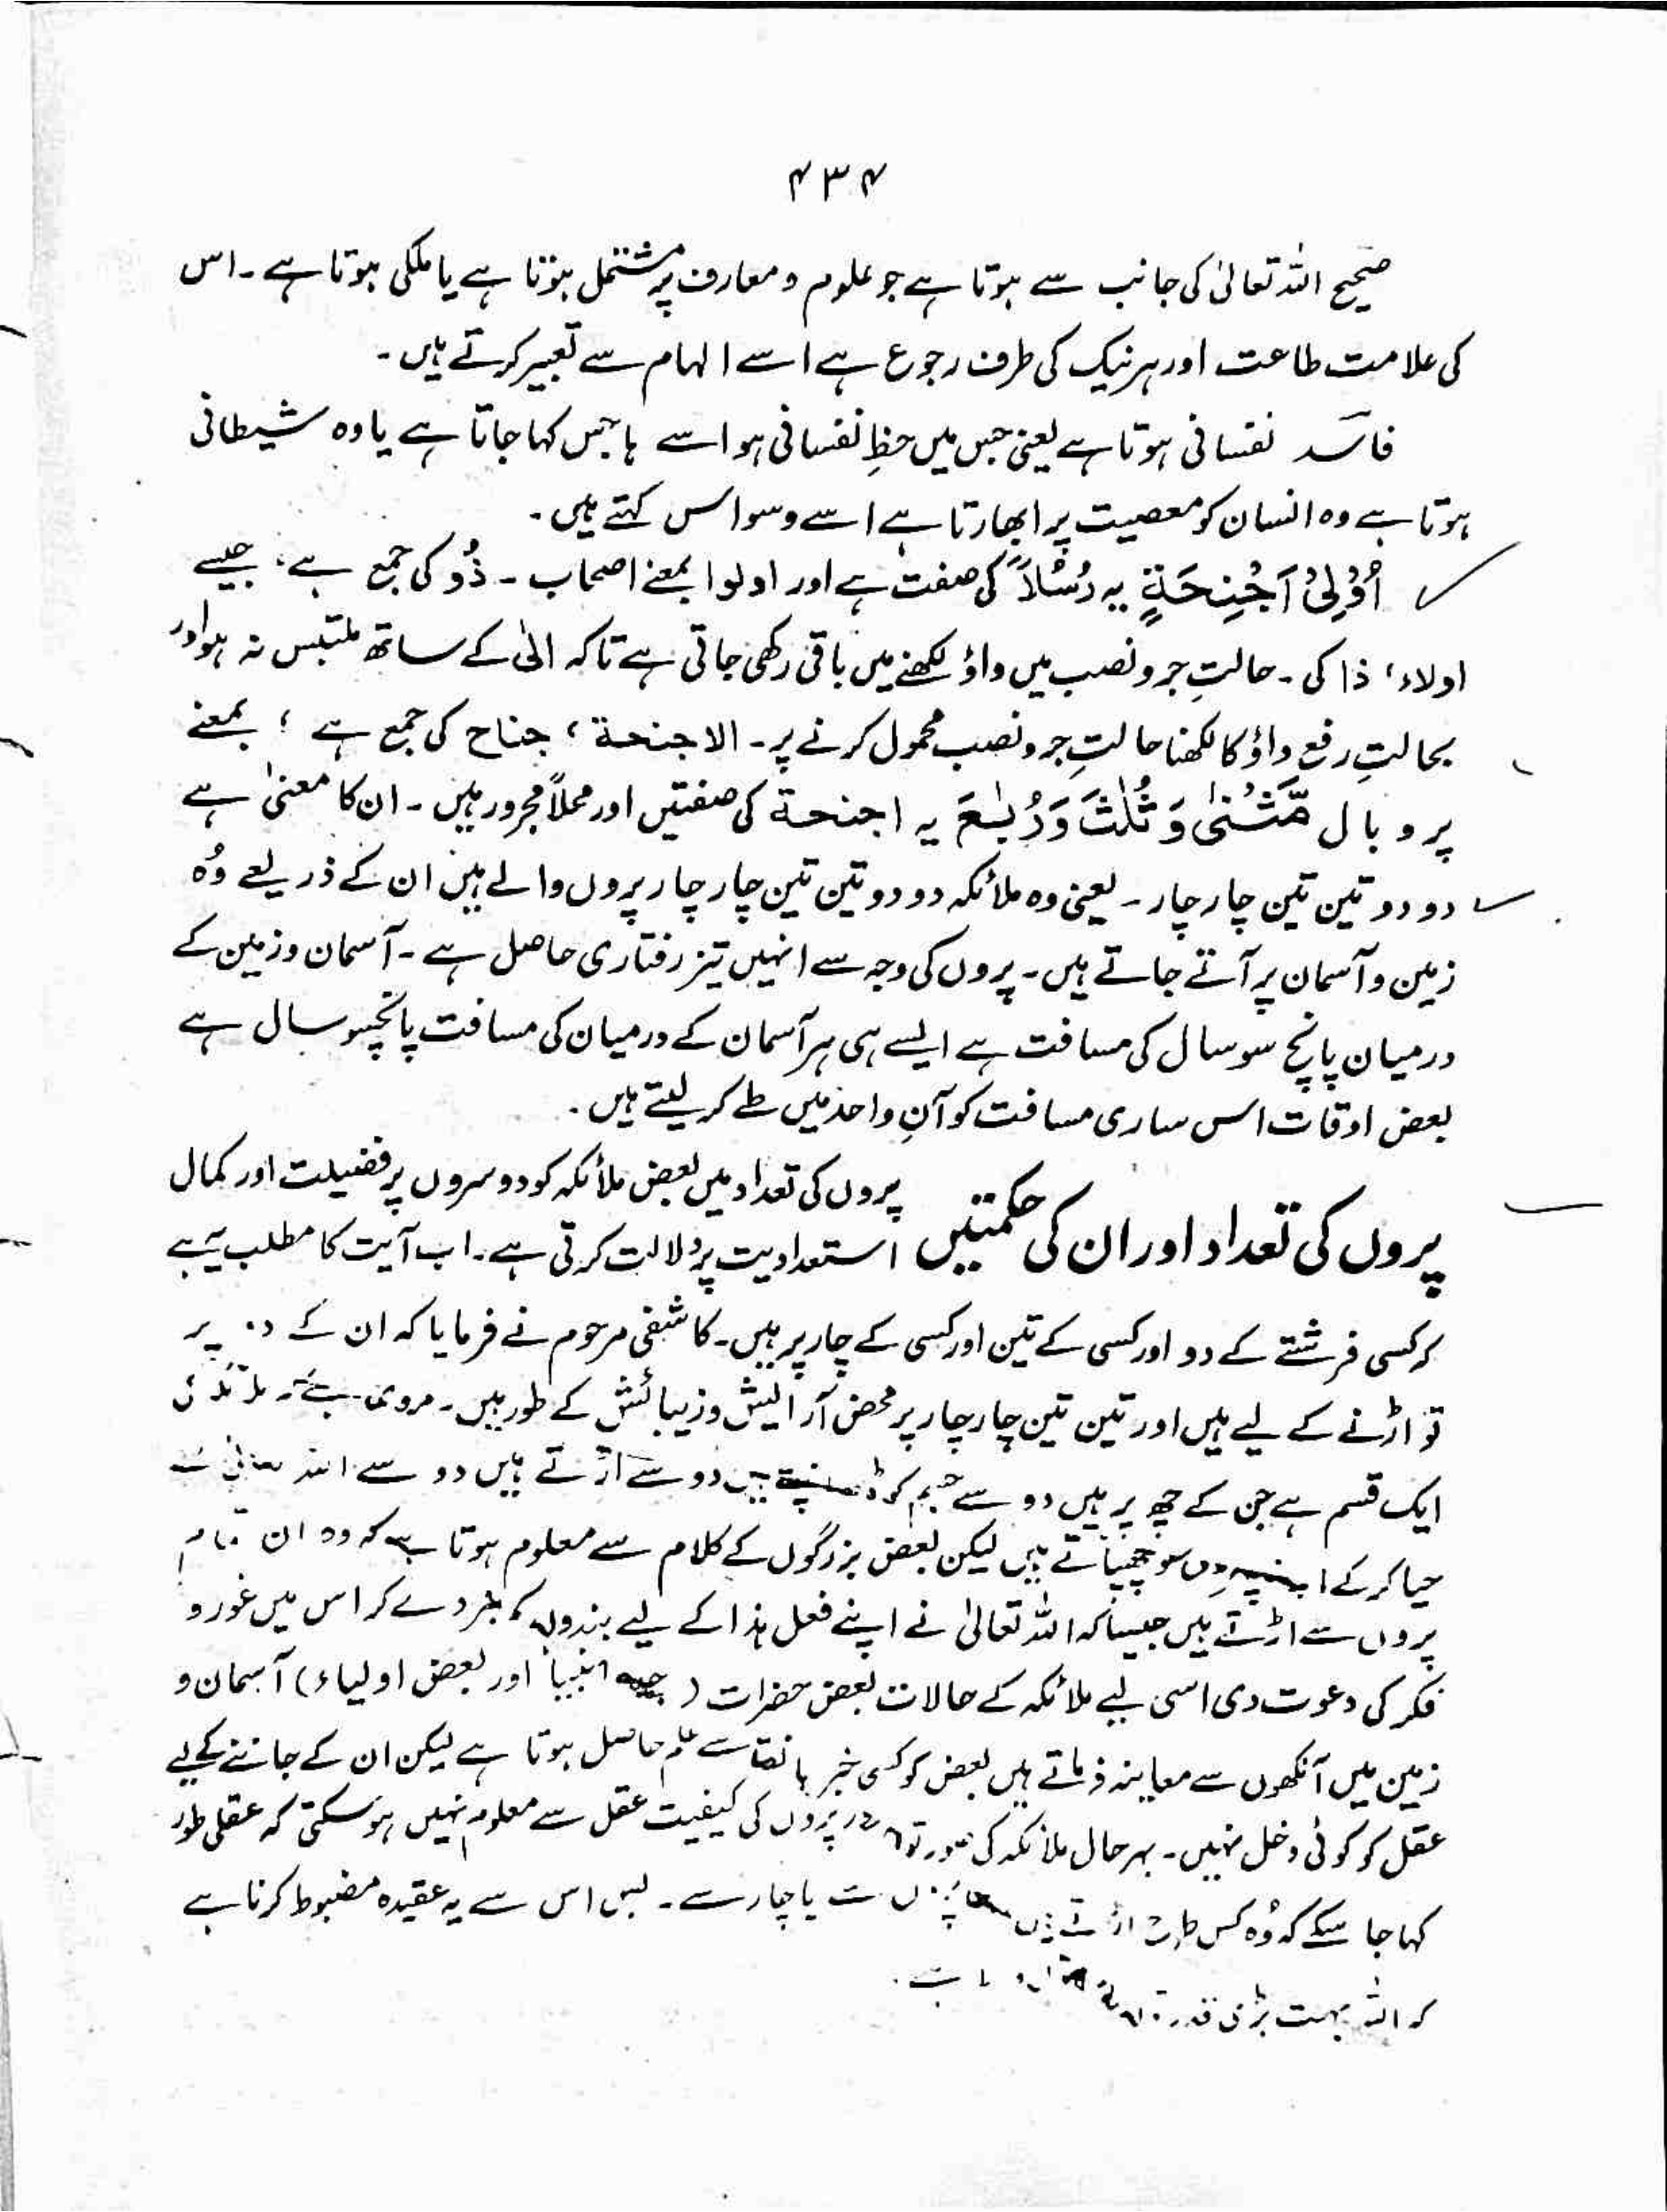 ۴۳۴
صحیح اللہ تعالیٰ کی جانب سے ہوتا ہے جو علوم و معارف پر مشتمل ہوتا ہے یا ملکی ہوتا ہے۔ اس
کی علامت طاعت اور ہر نیک کی طرف رجوع ہے اسے الہام سے تعبیر کرتے ہیں۔
فاسد نفسانی ہوتا ہے یعنی جس میں حظِ نفسانی ہو اسے ہاجس کہا جاتا ہے یا وہ شیطانی
ہوتا ہے وہ انسان کو معصیت پر ابھارتا ہے اسے وسواس کہتے ہیں۔
اُولِیْ اَجْنِحَةٍ یہ رُسُلاً کی صفت ہے اور اولوا بمعنے اصحاب ۔ ذُو کی جمع ہے، جیسے
اولاء، ذا کی۔ حالتِ جر و نصب میں واؤ لکھنے میں باقی رکھی جاتی ہے تاکہ الیٰ کے ساتھ ملتبس نہ ہو اور
بحالتِ رفع واؤ کا لکھنا حالتِ جر و نصب محمول کرنے پر۔ الاجنحة، جناح کی جمع ہے؛ بمعنے
پر و بال مَّثْنٰی وَ ثُلٰثَ وَرُبٰعَ یہ اجنحة کی صفتیں اور محلاً مجرور ہیں۔ ان کا معنیٰ ہے
دو دو تین تین چار چار ۔ یعنی وہ ملائکہ دو دو تین تین چار چار پروں والے ہیں ان کے ذریعے وُہ
زمین و آسمان پر آتے جاتے ہیں۔ پروں کی وجہ سے انہیں تیز رفتاری حاصل ہے۔ آسمان و زمین کے
درمیان پانچ سو سال کی مسافت ہے ایسے ہی ہر آسمان کے درمیان کی مسافت پانچسو سال ہے
بعض اوقات اس ساری مسافت کو آنِ واحد میں طے کر لیتے ہیں۔
پروں کی تعداد اور ان کی حکمتیں
پروں کی تعداد میں بعض ملائکہ کو دوسروں پر فضیلت اور کمال
استعدادیت پر دلالت کرتی ہے۔ اب آیت کا مطلب یہ ہے
کہ کسی فرشتے کے دو اور کسی کے تین اور کسی کے چار پر ہیں۔ کاشفی مرحوم نے فرمایا کہ ان کے دو پر
تو اڑنے کے لیے ہیں اور تین تین چار چار پر محض آرائش و زیبائش کے طور ہیں۔ مروی ہے
ایک قسم ہے جن کے چھ پر ہیں دو سے جسم کو ڈھانپتے ہیں دو سے اڑتے ہیں دو سے اللہ تعالیٰ سے
حیا کر کے اپنے چھپاتے ہیں لیکن بعض بزرگوں کے کلام سے معلوم ہوتا ہے کہ وہ ان تمام
پروں سے اڑتے ہیں جیسا کہ اللہ تعالیٰ نے اپنے فعل ہذا کے لیے بندوں کو خبر دے کر اس میں غور و
فکر کی دعوت دی اسی لیے ملائکہ کے حالات بعض حضرات (جیسے انبیاء اور بعض اولیاء) آسمان و
زمین میں آنکھوں سے معاینہ فرماتے ہیں بعض کو کسی خبر سے علم حاصل ہوتا ہے لیکن ان کے جاننے کے لیے
عقل کو کوئی دخل نہیں۔ بہرحال ملائکہ کی صورتوں اور پروں کی کیفیت عقل سے معلوم نہیں ہو سکتی کہ عقلی طور
کہا جا سکے کہ وُہ کس طرح اڑتے ہیں یا چار سے۔ بس اس سے یہ عقیدہ مضبوط کرنا ہے
کہ اللہ بہت بڑی ہے۔